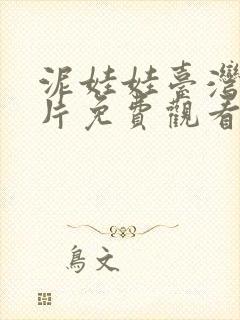 泥娃娃臺灣
片免費觀看
鳥文